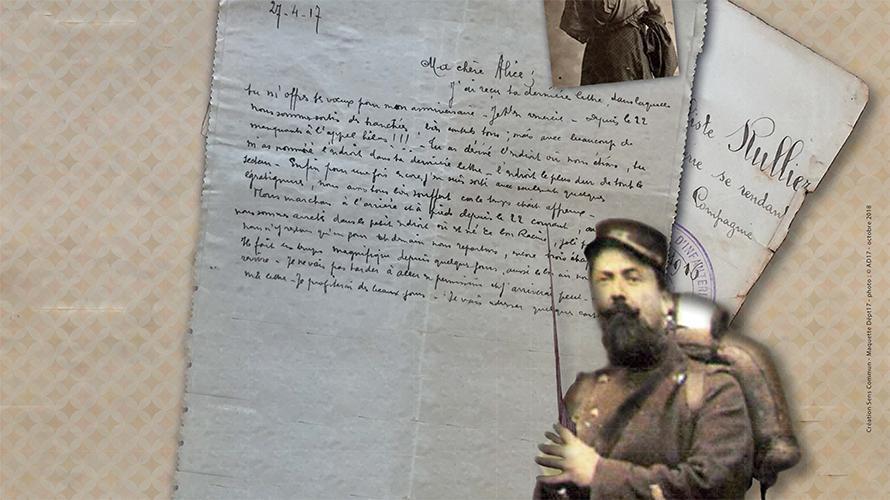 27-4-17
Ma chère Alice;
J'ai reçu ta dernière lettre, dans laquelle
tu m'offres tes vœux pour mon anniversaire. Je t'en remercie. Depuis le 22
nous sommes sortis de tranchées, très contents tous; mais avec beaucoup de
manquants à l'appel hélas!!! Tu as deviné l'endroit où nous étions, tu
m'as nommé l'endroit dans ta dernière lettre. l'endroit le plus dur de tout le
secteur. Enfin pour une fois encore j'en suis sorti avec seulement quelques
égratignures, nous avons tous bien souffert car le temps était affreux.
Nous marchons à l'arrière et à pied depuis le 22 courant,
nous sommes arrêtés dans le petit endroit où est né le bon Racine, joli
nous n'y restons qu'un jour et demain nous repartons, encore trois
Il fait un temps magnifique depuis quelques jours, aussi
revivre. Je ne vais pas tarder à aller en permission et j'arriverai peut-
ma lettre. Je profiterai des beaux jours. Je vais
iste Rullier
se rendant
Compagnie
D'INFANTERIE
1916
Création Sens Commun - Maquette Dépt17 - photo : © AD17 - octobre 2018